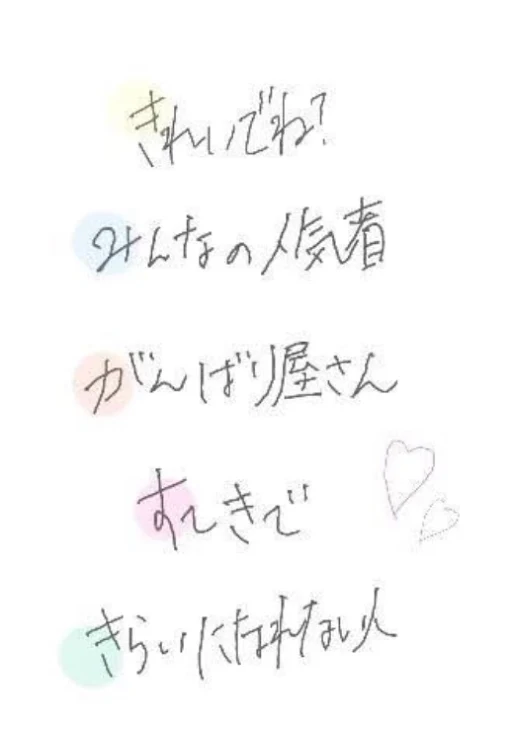 きれいでね?
みんなの人気者
がんばり屋さん
すてきで
きらいになれない人